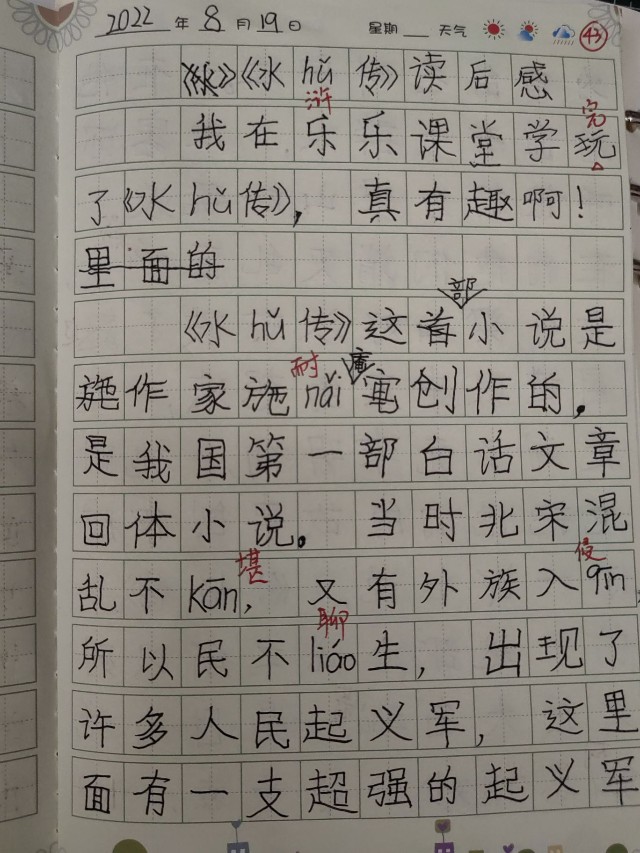 2022年8月19日 星期 天气 43
《水》《水hǔ传》读后感
浒
完
我在乐乐课堂学玩
了《水hǔ传》，真有趣啊！
里面的
部
《水hǔ传》这首小说是
耐 庵
施作家施nǎi创作的，
是我国第一部白话文章
回体小说。当时北宋混
堪 侵
乱不kān，又有外族入qīn，
聊
所以民不liáo生，出现了
许多人民起义军，这里
面有一支超强的起义军